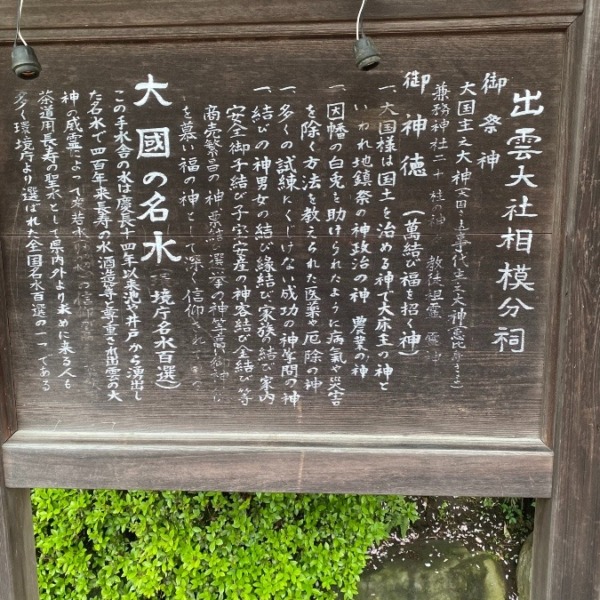 出雲大社相模分祠
御祭神
大国主之大神 事代主之大神
兼務神社二十 柱の神 教徒祖霊
御神徳(萬結び福を招く神)
一、大国様は国土を治める神で大床主の神と
いわれ地鎮祭の神政治の神 農業の神
一、因幡の白兎を助けられたように病氣や災害
を除く方法を教えられた医薬や厄除の神
一、多くの試練にくじけない成功の神学問の神
一、結びの神男女の結び縁結び家族の結び家内
安全御子結び子宝安産の神客結び金結び等
商売繁昌の神
を慕い福の神として深く信仰され
大國の名水(境庁名水百選)
この手水舎の水は慶長十四年以来池や井戸から湧出し
た名水で四百年来長寿の水酒造等で尊重され出雲の大
神の威霊によって
茶道用長寿の聖水として県内外より求めに来る人も
多く環境庁より選ばれた全国名水百選の一つである